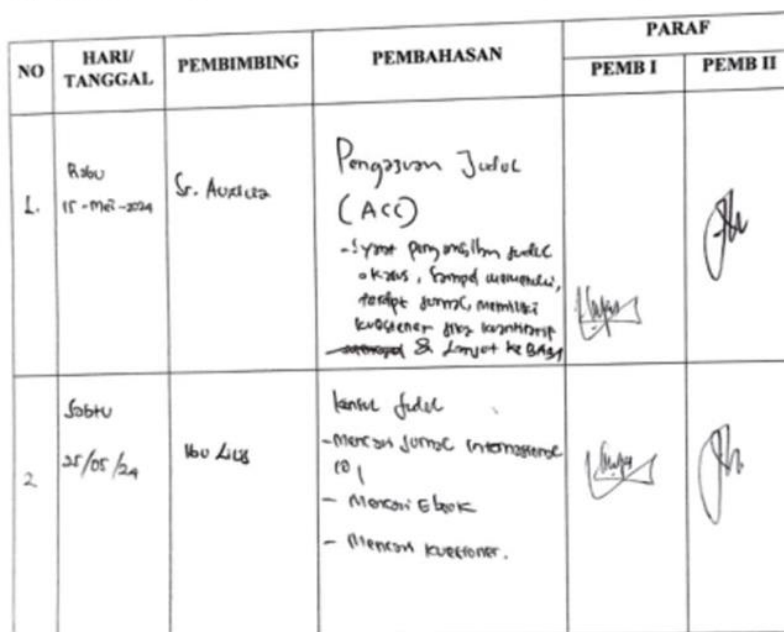 NO HARI/ TANGGAL PEMBIMBING PEMBAHASAN PARAF
PEMB I PEMB II
1.
Rabu
15 - Mei - 2024
Sr. Auxilia
Pengajuan Judul
(ACC)
- Syarat judul
kasus, Sampel memenuhi,
jurnal, memiliki
kuesioner jika
& Lanjut ke BAB 1
2
Sabtu
25/05/24
Ibu Lilis
konsul judul
- Mencari Jurnal Internasional
- Mencari Ebook
- Mencari kuesioner.